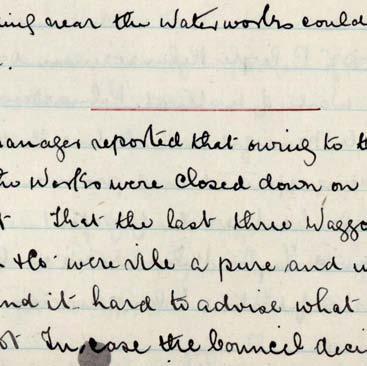 ing near the Waterworks could
.
anager reported that owing to th
Works were closed down on
That the last three Waggo
& Co. were a pure and
nd it hard to advise what
st In case the Council deci